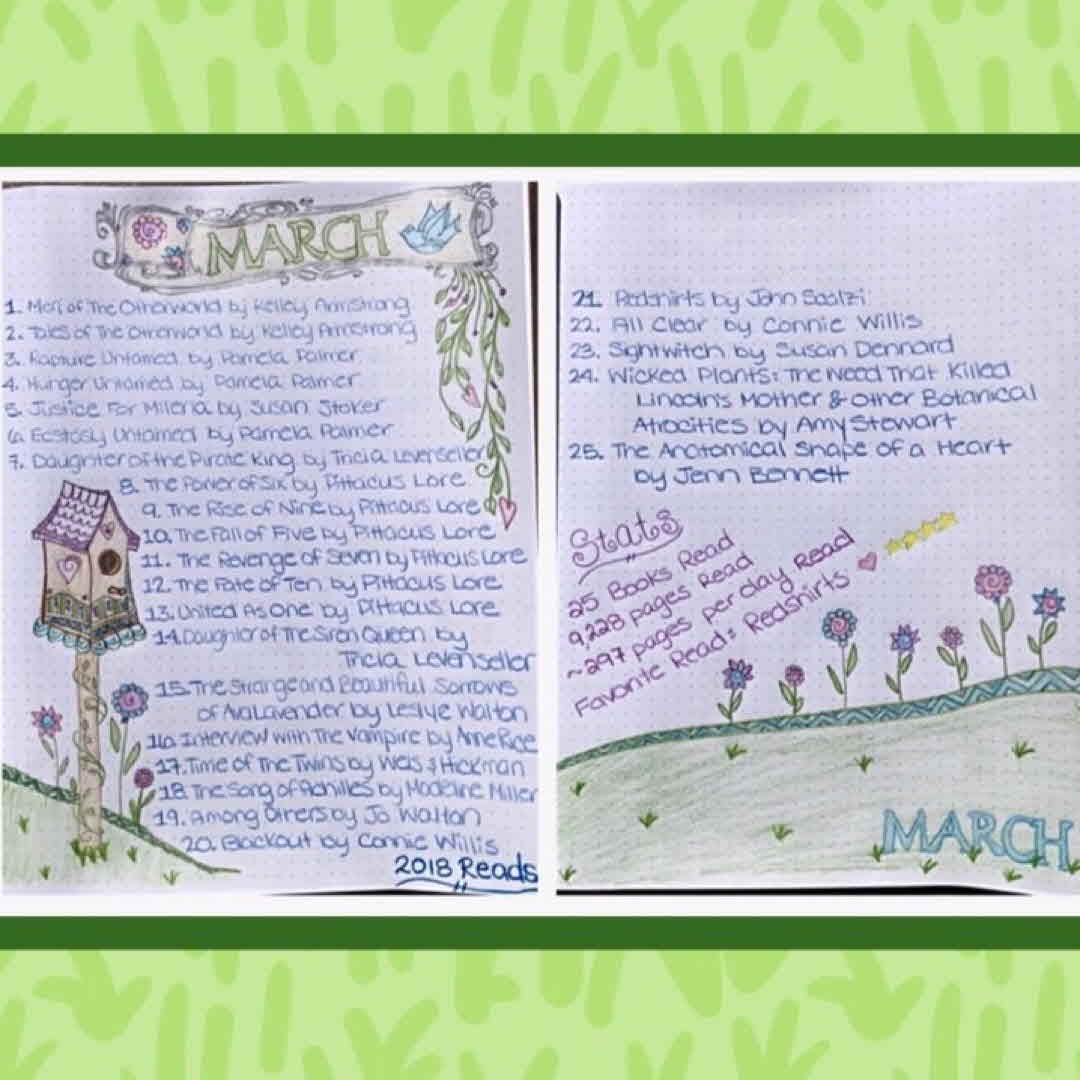 MARCH
1. Men of The Otherworld by Kelley Armstrong
2. Tales of The Otherworld by Kelley Armstrong
3. Rapture Untamed by Pamela Palmer
4. Hunger Untamed by Pamela Palmer
5. Justice For Milena by Susan Stoker
6. Ecstasy Untamed by Pamela Palmer
7. Daughter of the Pirate King by Tricia Levenseller
8. The Power of Six by Pittacus Lore
9. The Rise of Nine by Pittacus Lore
10. The Fall of Five by Pittacus Lore
11. The Revenge of Seven by Pittacus Lore
12. The Fate of Ten by Pittacus Lore
13. United As One by Pittacus Lore
14. Daughter of The Siren Queen by
Tricia Levenseller
15. The Strange and Beautiful Sorrows
of Ava Lavender by Leslye Walton
16. Interview with The Vampire by Anne Rice
17. Time of The Twins by Weis & Hickman
18. The Song of Achilles by Madeline Miller
19. Among Others by Jo Walton
20. Blackout by Connie Willis
2018 Reads
21. Redshirts by John Scalzi
22. All Clear by Connie Willis
23. Sightwitch by Susan Dennard
24. Wicked Plants: The Weed That Killed
Lincoln's Mother & Other Botanical
Atrocities by Amy Stewart
25. The Anatomical Shape of a Heart
by Jenn Bennett
Stats
25 Books Read
9,228 pages Read
~297 pages per day Read
Favorite Read: Redshirts
MARCH